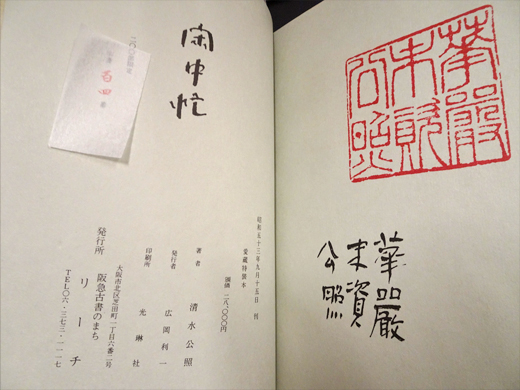 華嚴
末資
公照
華嚴
末資
公照
閑中忙
百四 番
昭和五十三年九月十五日 刊
愛蔵特装本
頒價 一八、〇〇〇円
著者 清水公照
発行者 広岡利一
印刷所 光琳社
大阪市北区芝田町一丁目六番二号
発行所 阪急古書のまち
リーチ
TEL〇六・三七三・一一一七